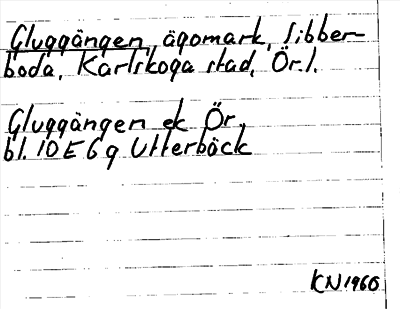 Gluggängen, ägomark, Sibber-
boda, Karlskoga stad, Ör.l.
Gluggängen ek Ör.
bl. 10E6g Utterbäck
KN1966